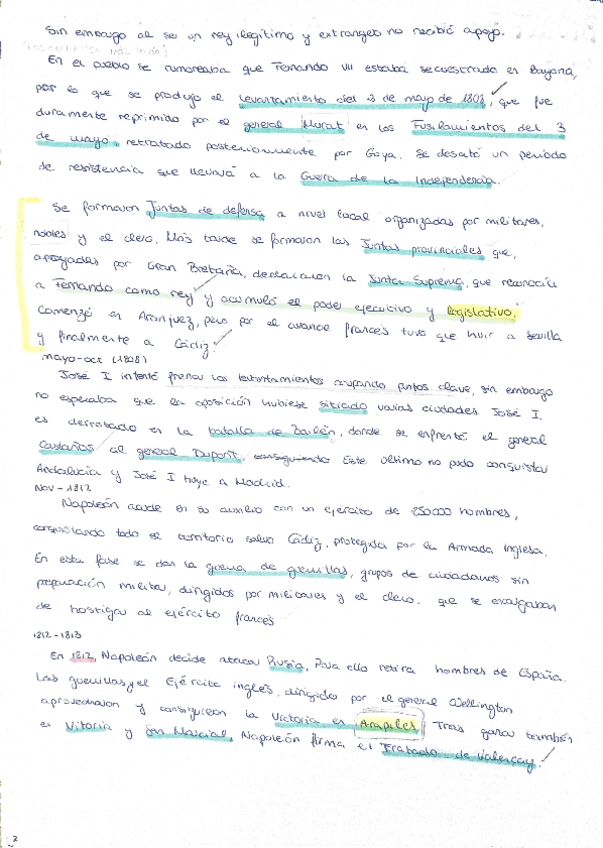 Sin embargo al se un rey ilegítimo y extranjero no recibió apoyo.
En el pueblo se rumoreaba que Fernando VII estaba secuestrado en Bayona,
por lo que se produjo el levantamiento del 2 de mayo de 1808, que fue
duramente reprimido por el general Murat en los Fusilamientos del 3
de mayo, retratado posteriormente por Goya. Se desató un periodo
de resistencia que llevará a la Guerra de la Independencia.
Se formaron Juntas de defensa a nivel local organizadas por militares,
nobles y el clero. Más tarde se formaron las Juntas provinciales que,
apoyadas por Gran Bretaña, declararon la Junta Suprema, que reconocía
a Fernando como rey y acumuló el poder ejecutivo y legislativo.
Comenzó en Aranjuez, pero por el avance francés tuvo que huir a Sevilla
y finalmente a Cádiz.
mayo-oct (1808)
José I intentó frenar los levantamientos ocupando puntos clave, sin embargo
no esperaba que la oposición hubiese sitiado varias ciudades José I.
es derrotado en la batalla de Bailén, donde se enfrentó el general
Castaños al general Dupont. Este último no pudo conquistar
Andalucía y José I huye a Madrid.
Nov - 1812
Napoleón acude en su auxilio con un ejército de 250000 hombres,
conquistando todo el territorio salvo Cádiz, protegida por la Armada Inglesa.
En esta fase se dan la guerra de guerrillas, grupos de ciudadanos sin
preparación militar, dirigidos por militares y el clero. que se encargaban
de hostigar al ejército francés
1812-1813
En 1812, Napoleón decide atacar Rusia, Para ello retira hombres de España.
Las guerrillas y el Ejército inglés, dirigido por el general Wellington
aprovecharon y consiguieron la Victoria en Arapiles. Tras ganar también
en Vitoria y San Marcial, Napoleón firma el Tratado de Valençay.
2